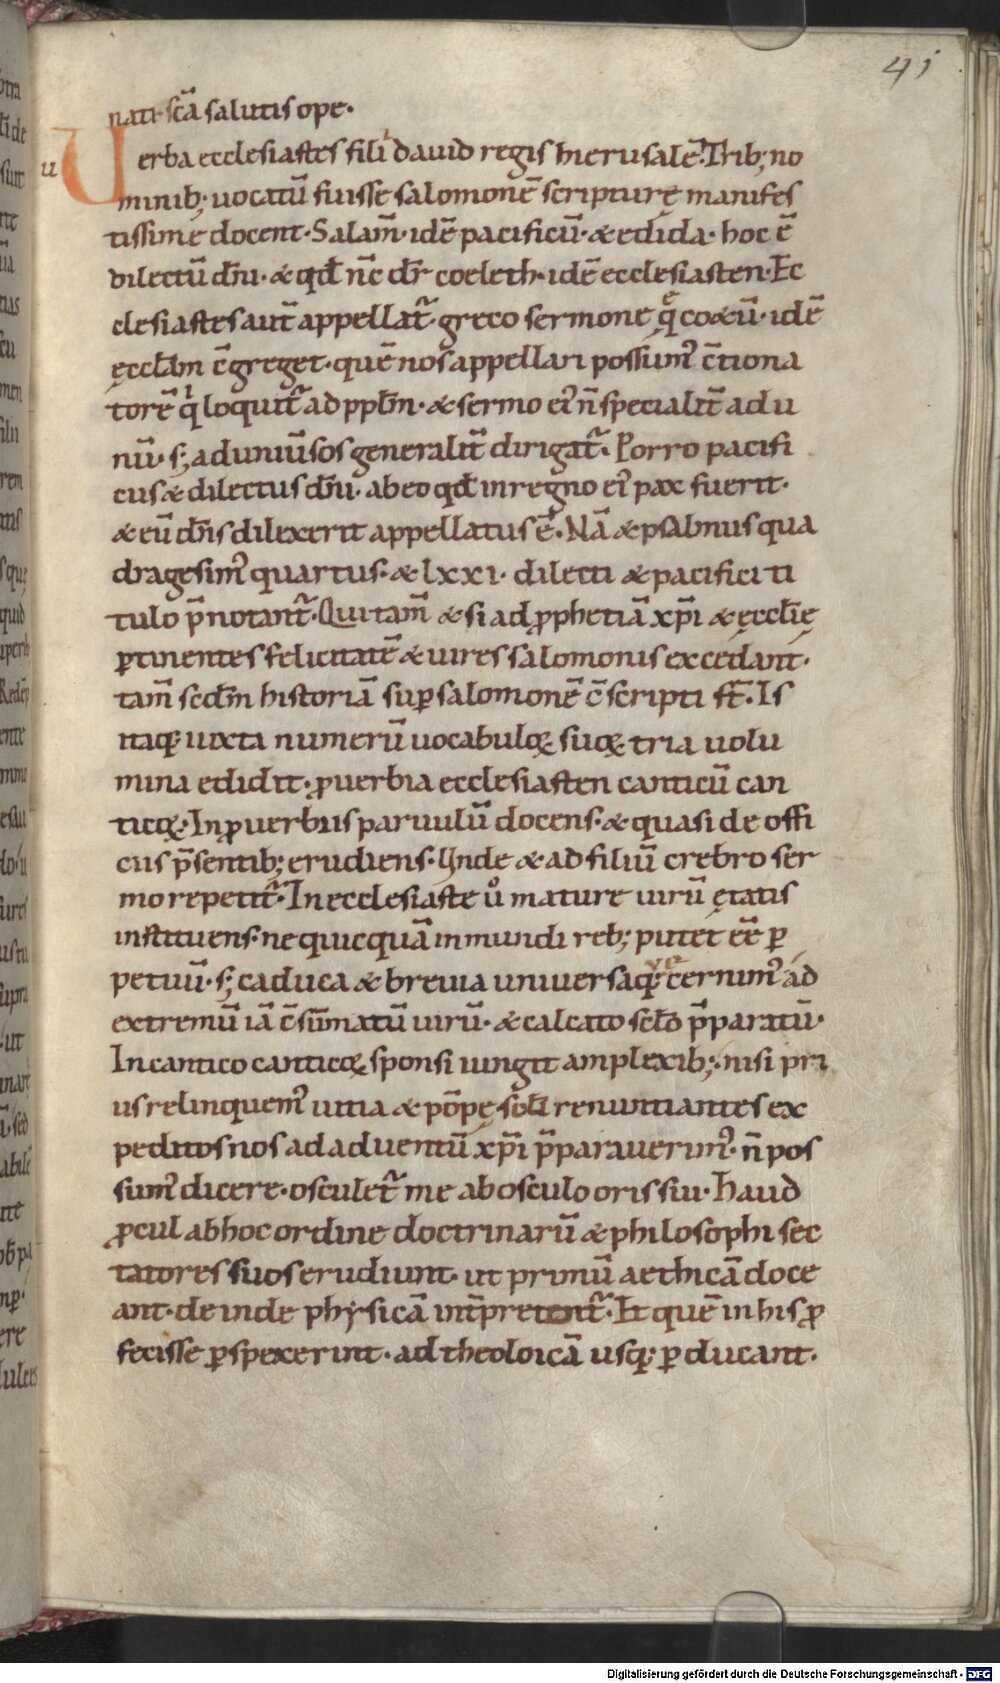 41
nati· scā salutis ope·
u Verba ecclesiastes filii dauid regis hierusalē· Trib; no
minib; uocatū fuisse salomonē scripturę manifes
tissime docent· Salam̄· idē pacificū· & edida· hoc ē
dilectū dn̄i· & qđ nc̄ dr̄ coeleth· idē ecclesiasten· Ec
clesiastes aut̄ appellat᷑· greco sermone q̄ coetū· idē
ęccłam c̄greget· quē nos appellari possum᷒ c̄tiona
torē q loquit᷑ ad ppłm· & sermo ei᷒ n̄ specialit̄ ad u
nū· s; ad uniūsos generalit̄ dirigat᷑· Porro pacifi
cus & dilectus dn̄i· ab eo qđ in regno ei᷒ pax fuerit·
& eū dn̄s dilexerit appellatus ē· Nā & psalmus qua
dragesim᷒ quartus· & lxxi· dilecti & pacifici ti
tulo p̄notant᷑· Qui tam̄ & si ad ꝓphetiā xp̄i & ęccłię
ꝑtinentes felicitatē & uires salomonis excedant·
tam̄ scđm historiā suꝑ salomonē c̄scripti st̄· Is
itaq; iuxta numerū uocabuloꝝ suoꝝ tria uolu
mina edidit· ꝓuerbia ecclesiasten canticū can
ticoꝝ· In ꝓuerbiis paruulū docens· & quasi de offi
ciis p̄sentib; erudiens· Unde & ad filiū crebro ser
mo repetit᷑· In ecclesiaste uͦ mature uirū ętatis
instituens· ne quicquā in mundi reb; putet eē̄ ꝑ
petuū· s; caduca & breuia uniuersa quę cernim᷒ ad
extremū iā c̄sūmatū uirū· & calcato scło p̄paratū·
In cantico canticoꝝ sponsi iungit amplexib;· nisi pri
us relinquem᷒ uitia & pōpę scłi renuntiantes ex
peditos nos ad aduentū xp̄i p̄parauerim᷒· n̄ pos
sum᷒ dicere· osculet᷑ me ab osculo oris sui· Haud
ꝓcul ab hoc ordine doctrinarū & philosophi sec
tatores suos erudiunt· ut primū aethicā doce
ant· deinde physicā int̄pretent᷑· Et quē in his ꝓ
fecisse ꝑspexerint· ad theoloicā usq; ꝑducant·
Digitalisierung gefördert durch die Deutsche Forschungsgemeinschaft - DFG